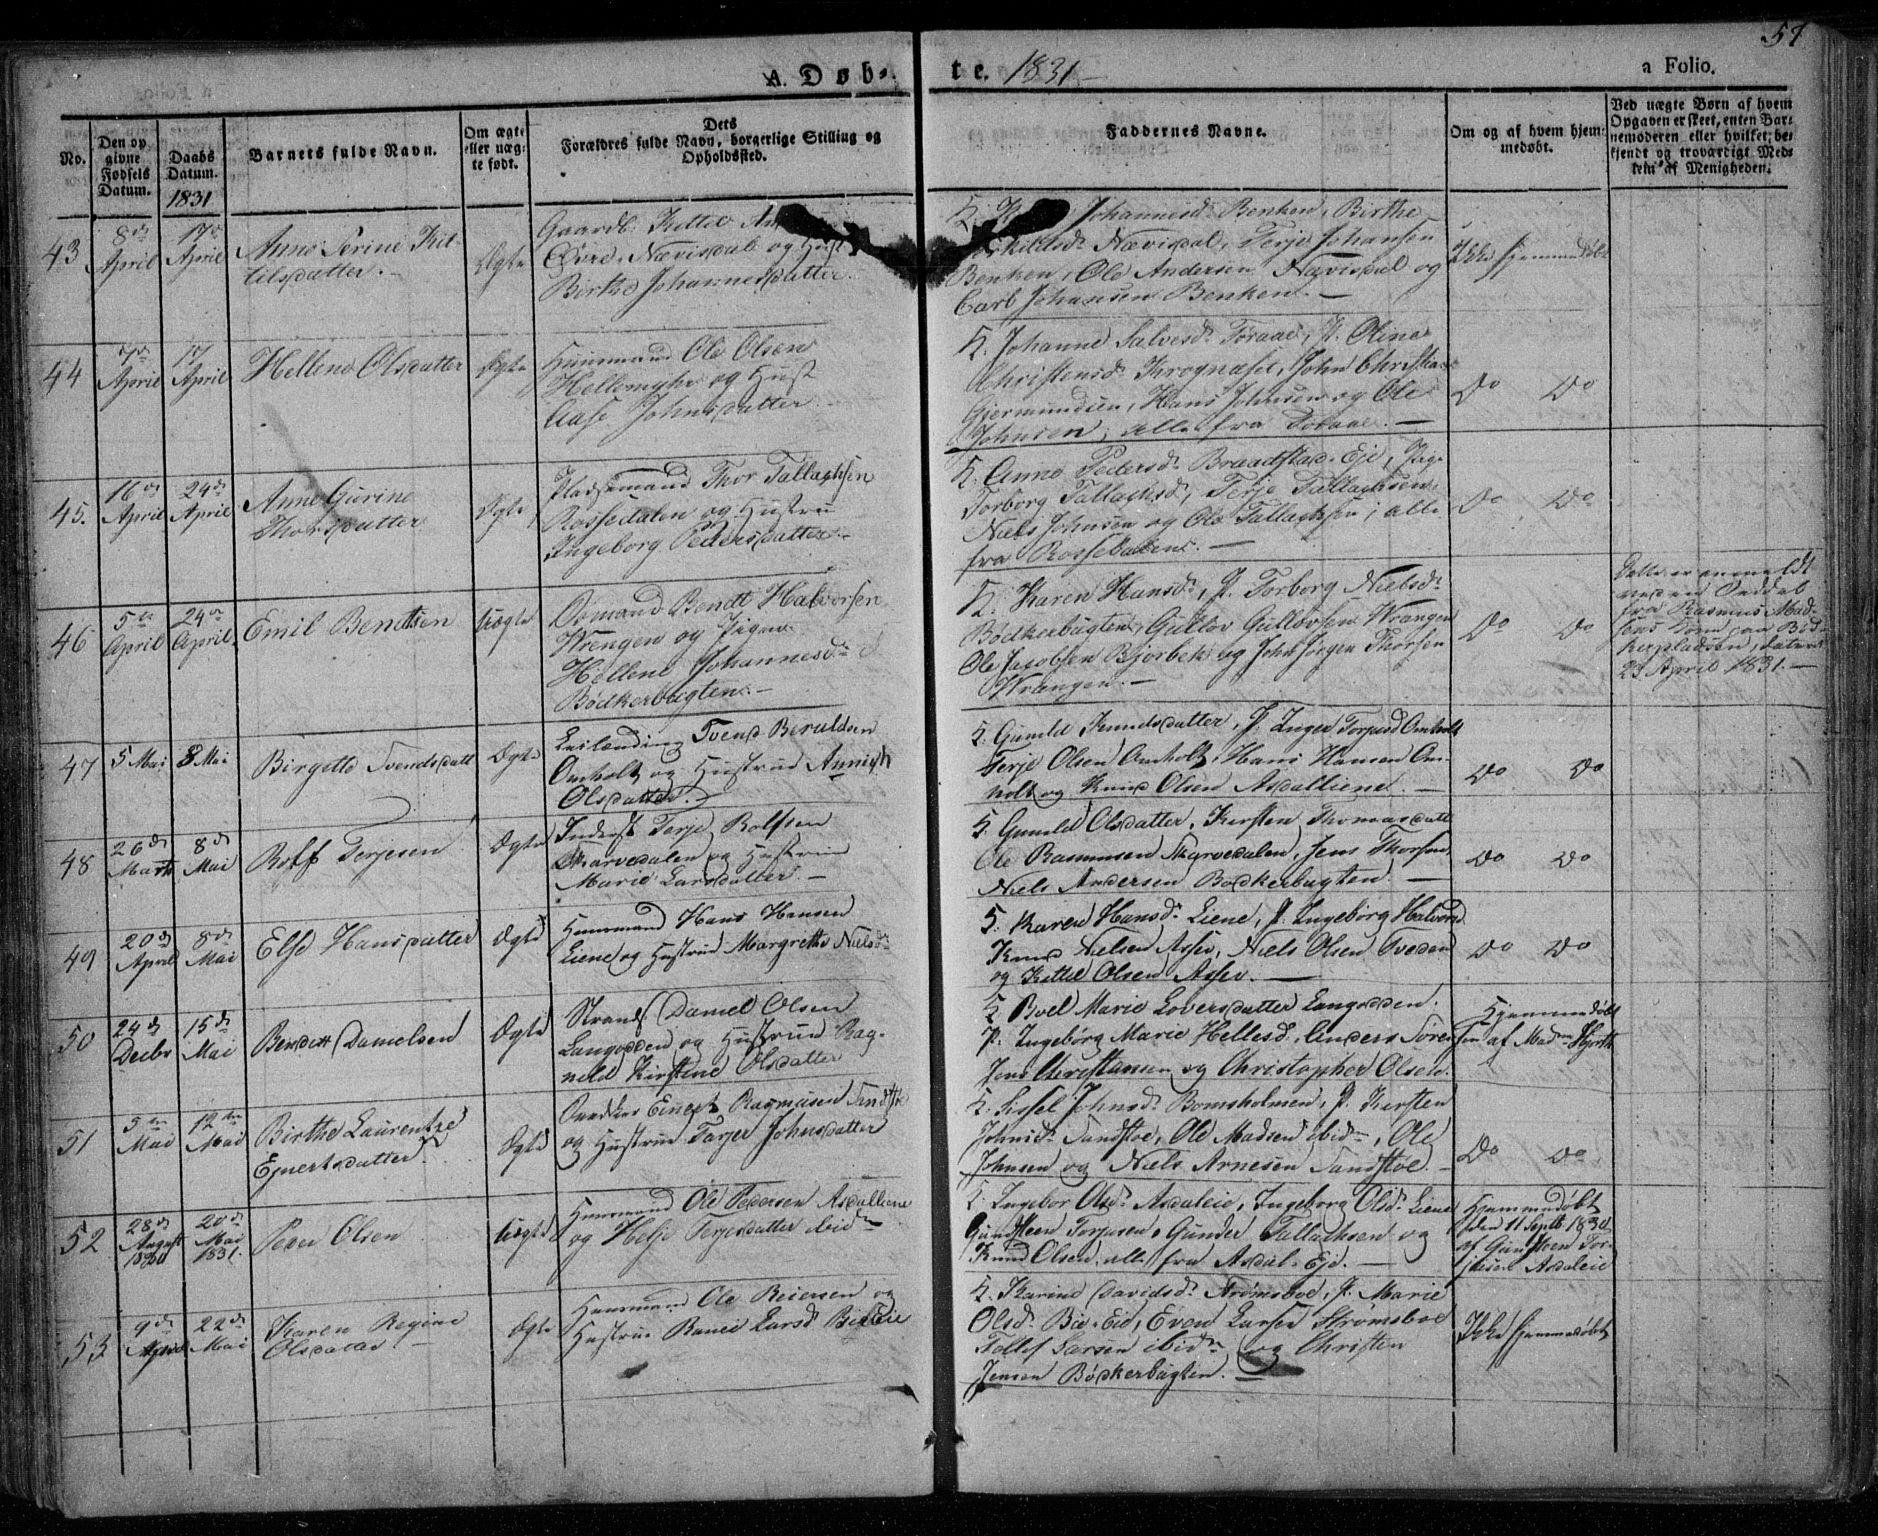 57
A. Døb-
te. 1831
a Folio.
No.
Den op
givne
Fødsels
Datum.
Daabs
Datum.
1831
Barnets fulde Navn.
Om ægte
eller uæg-
te født.
Dets
Forældres fulde Navn, borgerlige Stilling og
Opholdssted.
Faddernes Navne.
Om og af hvem hjem-
medøbt.
Ved uægte Børn af hvem
Opgaven er skeet, enten Bar-
nemoderen eller hvilket be-
kjendt og troværdigt Med-
lem af Menigheden.
43
8de
April
17de
April
Anne Serine Kit-
tilsdatter.
Ægte
Gaardb. Kittel
Øvre Nævisdal og Hust.
Birthe Johannesdatter
K. Johannesd. Benken, Birthe
Nævisdal, Terje Johansen
Benken, Ole Andersen Nævisdal og
Carl Johansen Benken.
Ikke hjemmedøbt
44
7de
April
17
April
Hellene Olsdatter
Ægte
Huusmand Ole Olsen
Hellemyhr og Hust
Aase Johnsdatter
K. Johanne Salvesd. Foraae, P. Oline
Christensd. Krognæset, John Christian
Gjermundsen, Hans Johnsen og Ole
Johnsen, alle fra Foraae.
Do Do
45.
16de
April
24de
April
Anne Gurine
Thorsdatter
Ægte
Pladsemand Thor Tallachsen
Rossedalen og Hustru
Ingeborg Pedersdatter
K. Anne Pedersd. Braadstad-Eje, Pig.
Torborg Tallachsd., Terje Tallachsen,
Niels Johnsen og Ole Tallachsen, alle
fra Rossedalen.
Do Do
46
5te
April
24de
April
Emil Bendtsen
Uægte
Sømand Bendt Halvorsen
Wrengen og Pigen
Hellene Johannesd.
Bødkerbugten
K. Karen Hansd., P. Torborg Nielsd.
Bødkerbugten, Gullov Gullovsen Wrangen
Ole Jacobsen Bjorbek og John Jørgen Thorsen
Wrangen.
Do Do
Dette er anmeldt
ved en Seddel
fra Rasmus Mad-
sens Kone paa Bød-
kerpladsen, dateret
23 April 1831.
47
5 Mai
8 Mai
Birgette Svendsdatt
Ægte
Leilænding Svend Beruldsen
Omholt og Hustrue Annich
Olsdatter.
K. Gunild Knudsdatter, P. Inger Torjusd Omholt
Terje Olsen Omholt, Hans Hansen Om-
holt og Knud Olsen Asdalliene.
Do Do
48
26de
Marts
8de
Mai
Rolf Terjesen
Ægte
Inderst Terje Rolfsen
Skarvedalen og Hustrue
Marie Larsdatter.
K. Gunild Olsdatter, Kirsten Thomasdatt
Ole Rasmussen Skarvedalen, Jens Thorsen,
Niels Andersen Bødkerbugten.
Do Do
49
20de
April
8de
Mai
Else Hansdatter
Ægte
Huusmand Hans Hansen
Liene og Hustrue Margrethe Nielsd.
K. Karen Hansd. Liene, P. Ingeborg Halvorsd
Knud Nielsen Assev, Niels Olsen Tveden
og Kittel Olsen Assev.
Do Do
50
24de
Decbr
15de
Mai
Bendett Danielsen
Ægte
Strands. Daniel Olsen
Langodden og Hustrue Rag-
nild Kirstine Olsdatter
K. Boel Marie Loversdatter Langodden.
P. Ingeborg Marie Hellesd., Anders Søren-
sen
Jens Christiansen og Christopher Olsen.
Hjemmedøbt
af Madm Hjorth
51
5te
Mai
12te
Mai
Birthe Laurentze
Ejnertsdatter
Ægte
Snedker Einert Rasmusen Sandstøe
og Hustrue Tarjer Johnsdatter
K. Sissel Johnsd. Bomsholmen, P. Kirsten
Johnsd. Sandstøe, Ole Madsen ibidm, Ole
Johnsen og Niels Arnesen Sandstøe.
Do Do
52
28de
August
1830
20de
Mai
1831.
Peder Olsen
Uægte
Huusmand Ole Pedersen Asdalliene
og Helje Terjesdatter ibidm
K. Ingebor Olsd. Asdaleie, Ingeborg Olsd. Liene
Gundsteen Torjusen, Gunder Tallachsen og
Knud Olsen, alle fra Asdal-Eje.
Hjemmedøbt
den 11 Septb 1830
af Gunsteen Tor-
jusen Asdaleie
53
9de
April
22de
Mai
Karen Regine
Olsdatter
Ægte
Huusmand Ole Reiersen og
Hustrue Larsd Bieleie
K. Karine Davidsd. Strømsboe, P. Marie
Olsd. Bie-Eid, Even Larsen Strømsboe
Larsen ibidm og Christen
Jensen Bødkerbugten.
Ikke hjemmedøbt